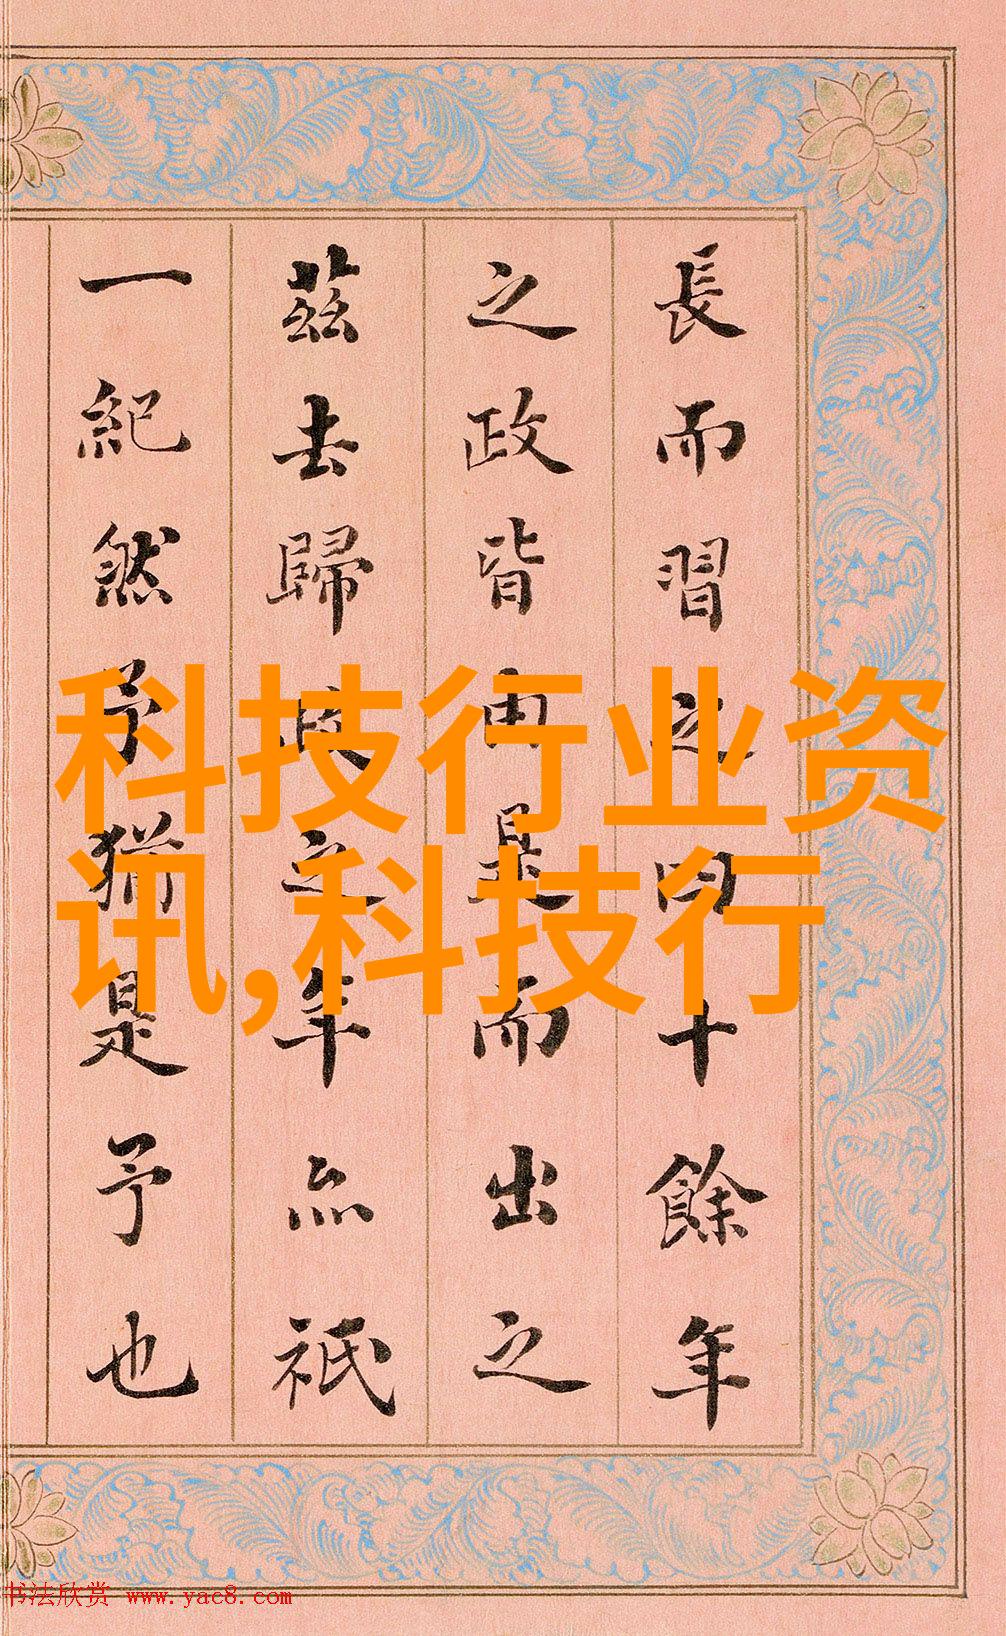 長而習之四十餘年
之政皆由是而出之
茲去歸政之年亦祇
一紀然予猶是予也
科技行业资
讯,科技行
书法欣赏 www.yac8.com